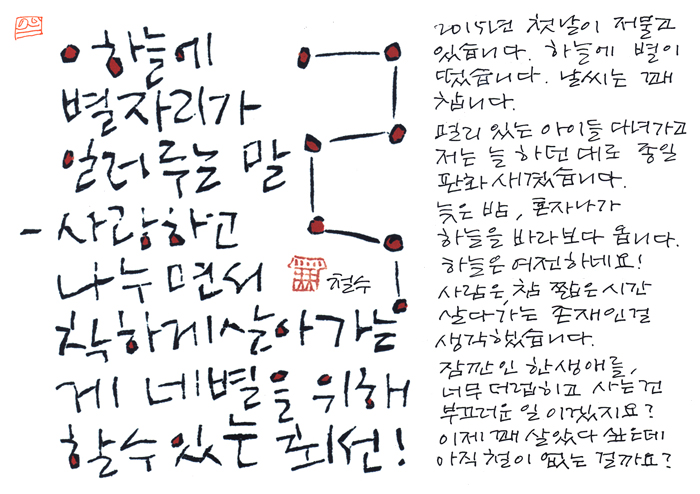 하늘에
별자리가
일러주는 말
- 사랑하고
나누면서
착하게 살아가는
게 네 별을 위해
할 수 있는 최선!
철수
2015년 첫날이 저물고
있습니다. 하늘에 별이
떴습니다. 날씨는 꽤
찹니다.
멀리 있는 아이들 다녀가고
저는 늘 하던 대로 종일
판화 새겼습니다.
늦은 밤, 혼자 나가
하늘을 바라보다 옵니다.
하늘은 여전하네요!
사람은, 참 짧은 시간
살다가는 존재인걸
생각했습니다.
잠깐인 한 생애를,
너무 더럽히고 사는건
부끄러운 일이겠지요?
이제 꽤 살았다 싶은데
아직 철이 없는 걸까요?